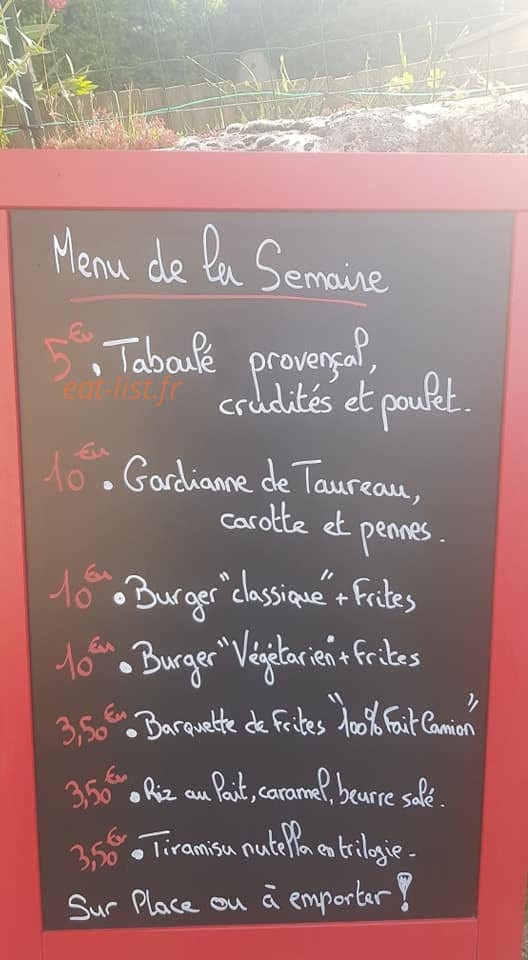 Menu de la Semaine
5 Eu . Taboulé provençal,
eat-list.fr
crudités et poulet.
10 Eu . Gardianne de Taureau,
carotte et pennes.
10 Eu . Burger "classique" + Frites
10 Eu . Burger "Végétarien" + Frites
3,50 Eu . Barquette de Frites "100% Fait Camion"
3,50 Eu . Riz au lait, caramel, beurre salé.
3,50 Eu . Tiramisu nutella en trilogie.
Sur Place ou à emporter !